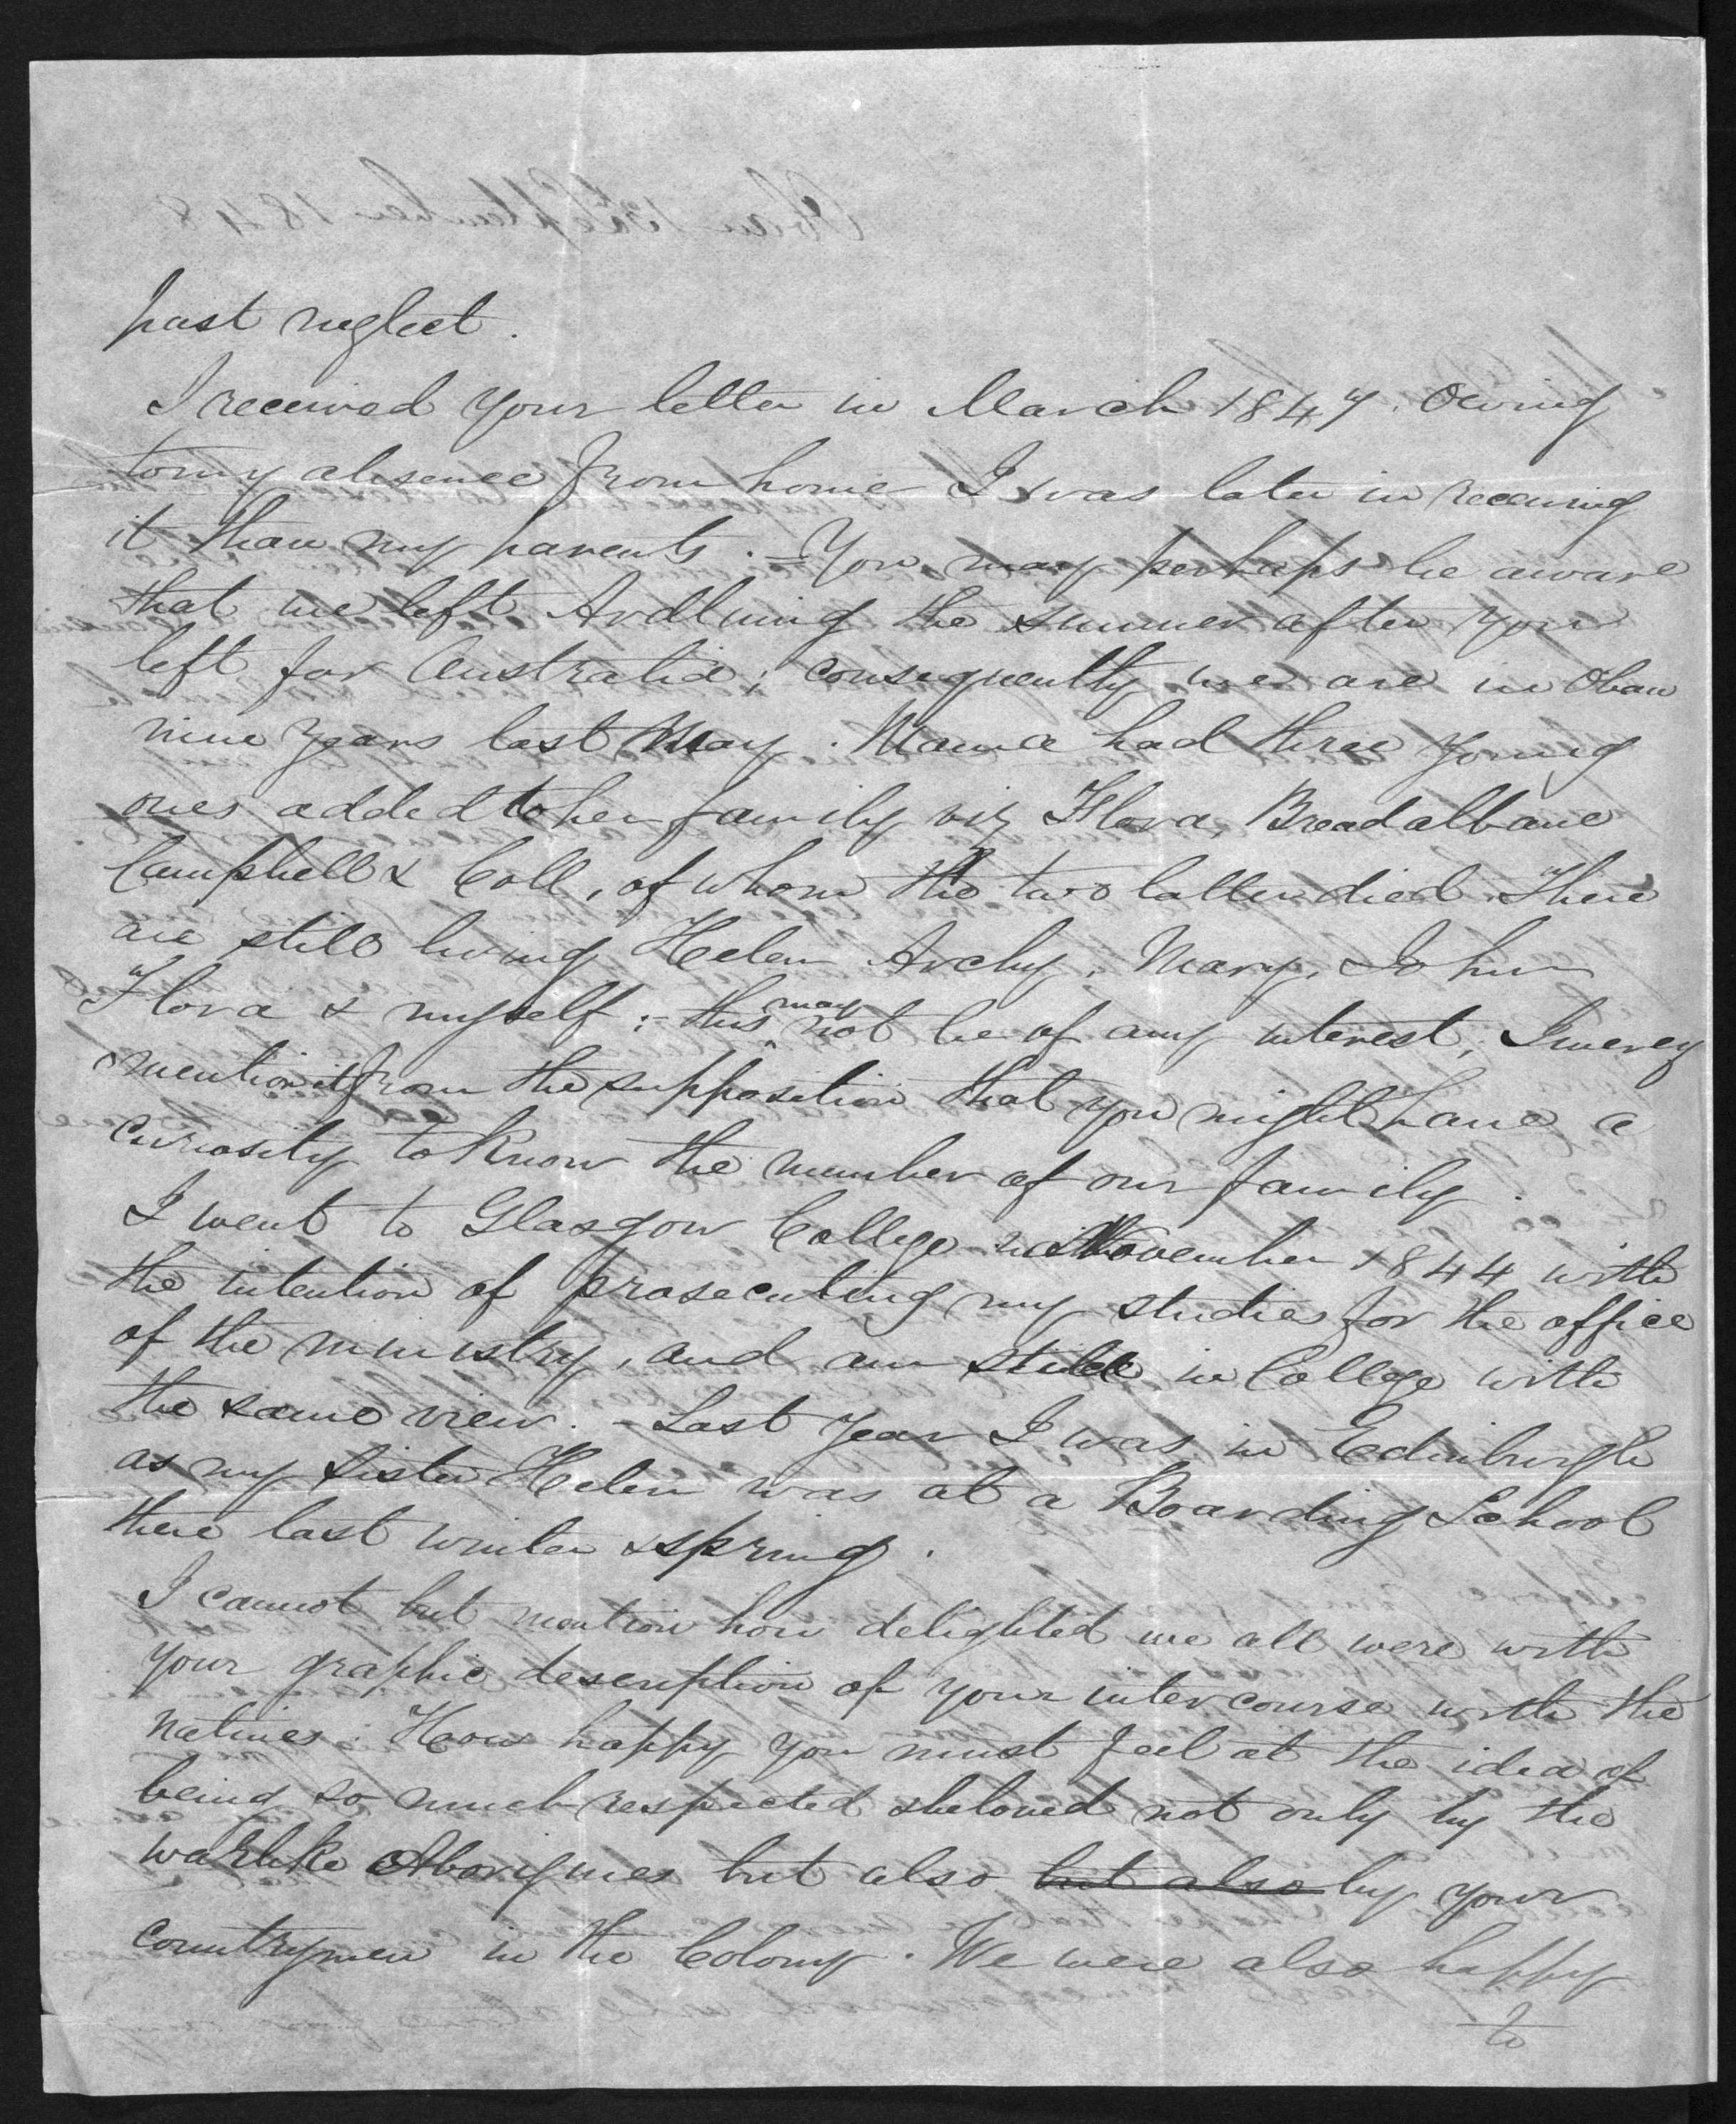 past neglect.
I received your letter in March 1847. Owing
to my absence from home I was later in receiving
it than my parents. - You may perhaps be aware
that we left Ardluing the summer after you
left for Australia; consequently we are in Oban
nine years last May. Mama had three young
ones added to her family viz Flora, Breadalbane
Campbell & Coll, of whom the two latter died. There
are still living Helen Archy, Mary, John
Flora & myself; - this may not be of any interest, I merely
mention it from the supposition that you might have a
curiosity to know the number of our family.
I went to Glasgow College in November 1844 with
the intention of prosecuting my studies for the office
of the ministry, and am still in College with
the same view. - Last year I was in Edinburgh
as my sister Helen was at a Boarding School
there last winter & spring.
I cannot but mention how delighted we all were with
your graphic description of your intercourse with the
natives. How happy you must feel at the idea of
being so much respected & beloved not only by the
warlike Aborigines but also but also by your
countrymen in the Colony. We were also happy
to